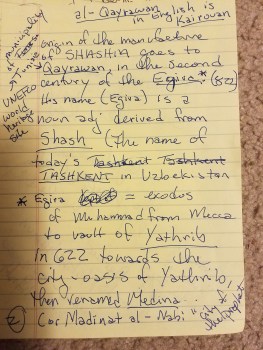 al-Qayrawan in English is
Kairouan
municipality
of
Tunis
UNESCO
world
heritage
site
origin of the manufacture
of SHASHIA goes to
Qayrawan, in the second
century of the Egira.* (622)
this name (Egira) is a
noun adj derived from
Shash (the name of
today's Tashkent Tashkent
TASHKENT in Uzbekistan
* Egira = exodus
of Muhammad from Mecca
to vault of Yathrib
In 622 towards the
city-oasis of Yathrib,
then renamed Medina..
(or Madinat al-Nabi "city of
the prophet
2